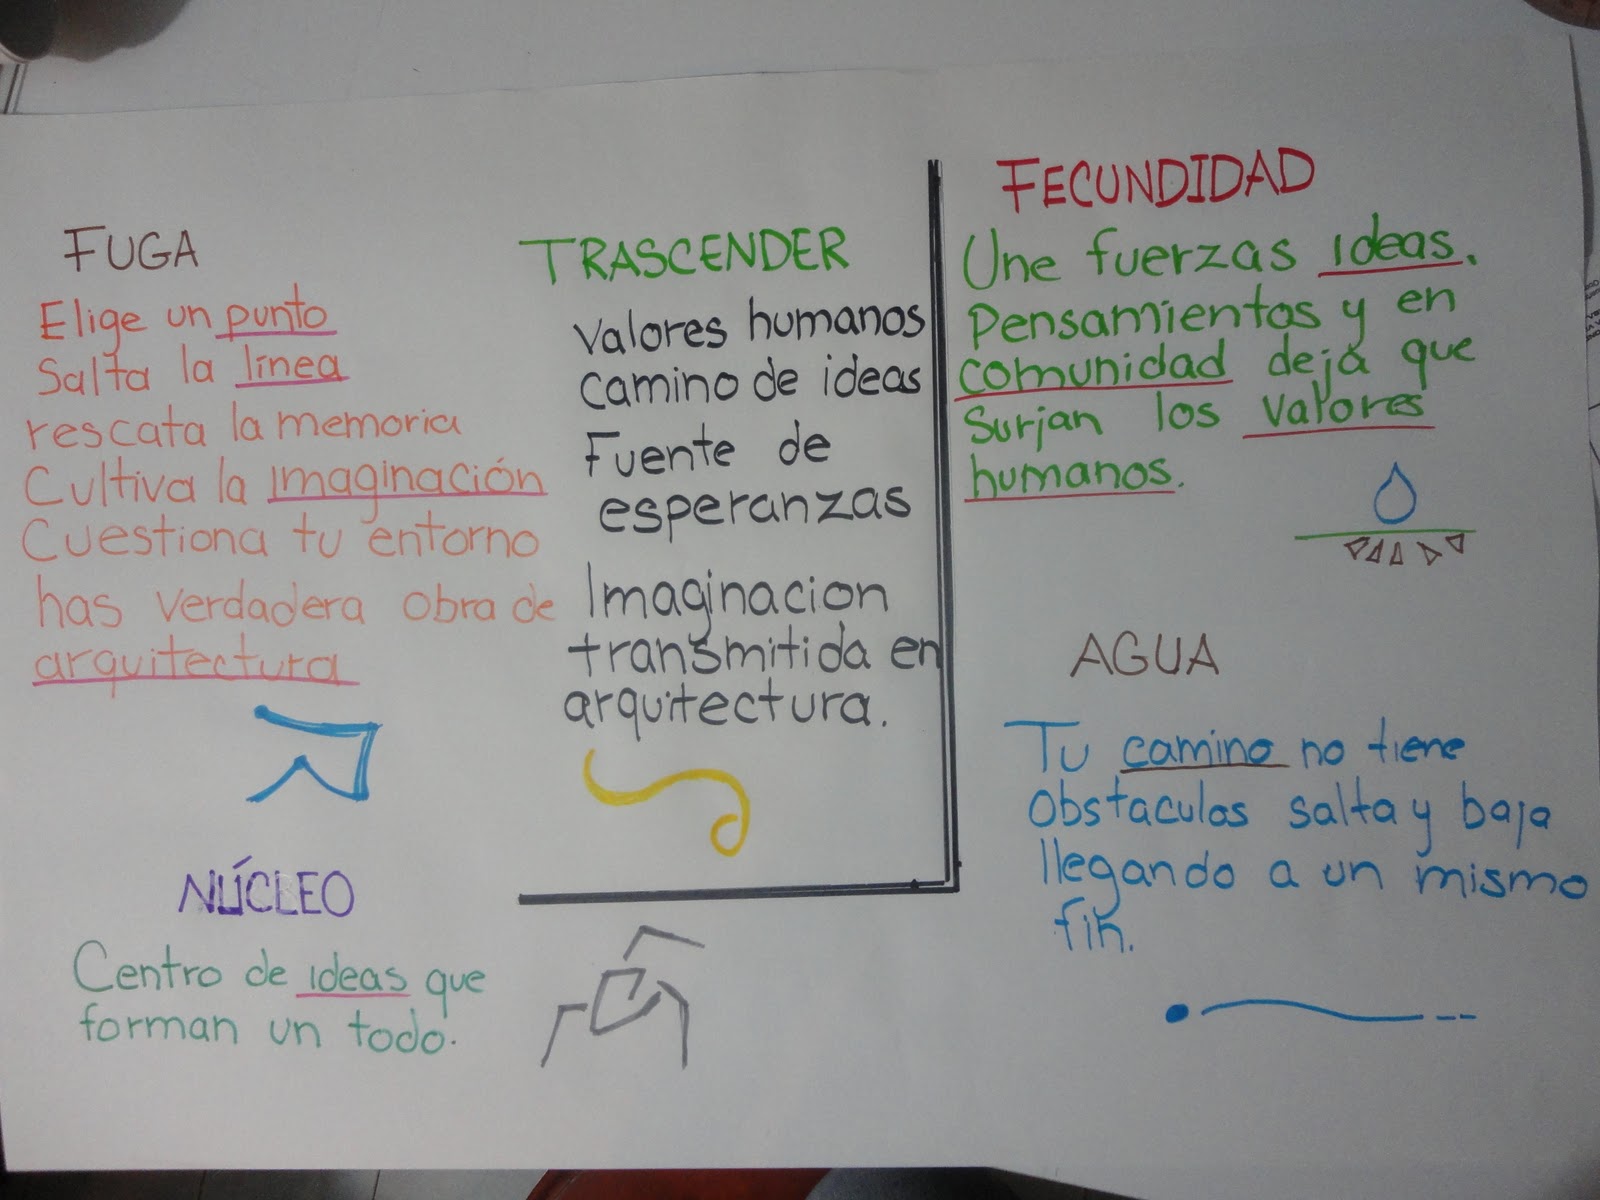 FUGA
Elige un punto
Salta la línea
rescata la memoria
Cultiva la imaginación
Cuestiona tu entorno
has verdadera obra de
arquitectura
TRASCENDER
Valores humanos
camino de ideas
Fuente de
esperanzas
Imaginacion
transmitida en
arquitectura.
NÚCLEO
Centro de ideas que
forman un todo.
FECUNDIDAD
Une fuerzas ideas.
Pensamientos y en
comunidad deja que
Surjan los valores
humanos.
AGUA
Tu camino no tiene
Obstaculos salta y baja
llegando a un mismo
fin.